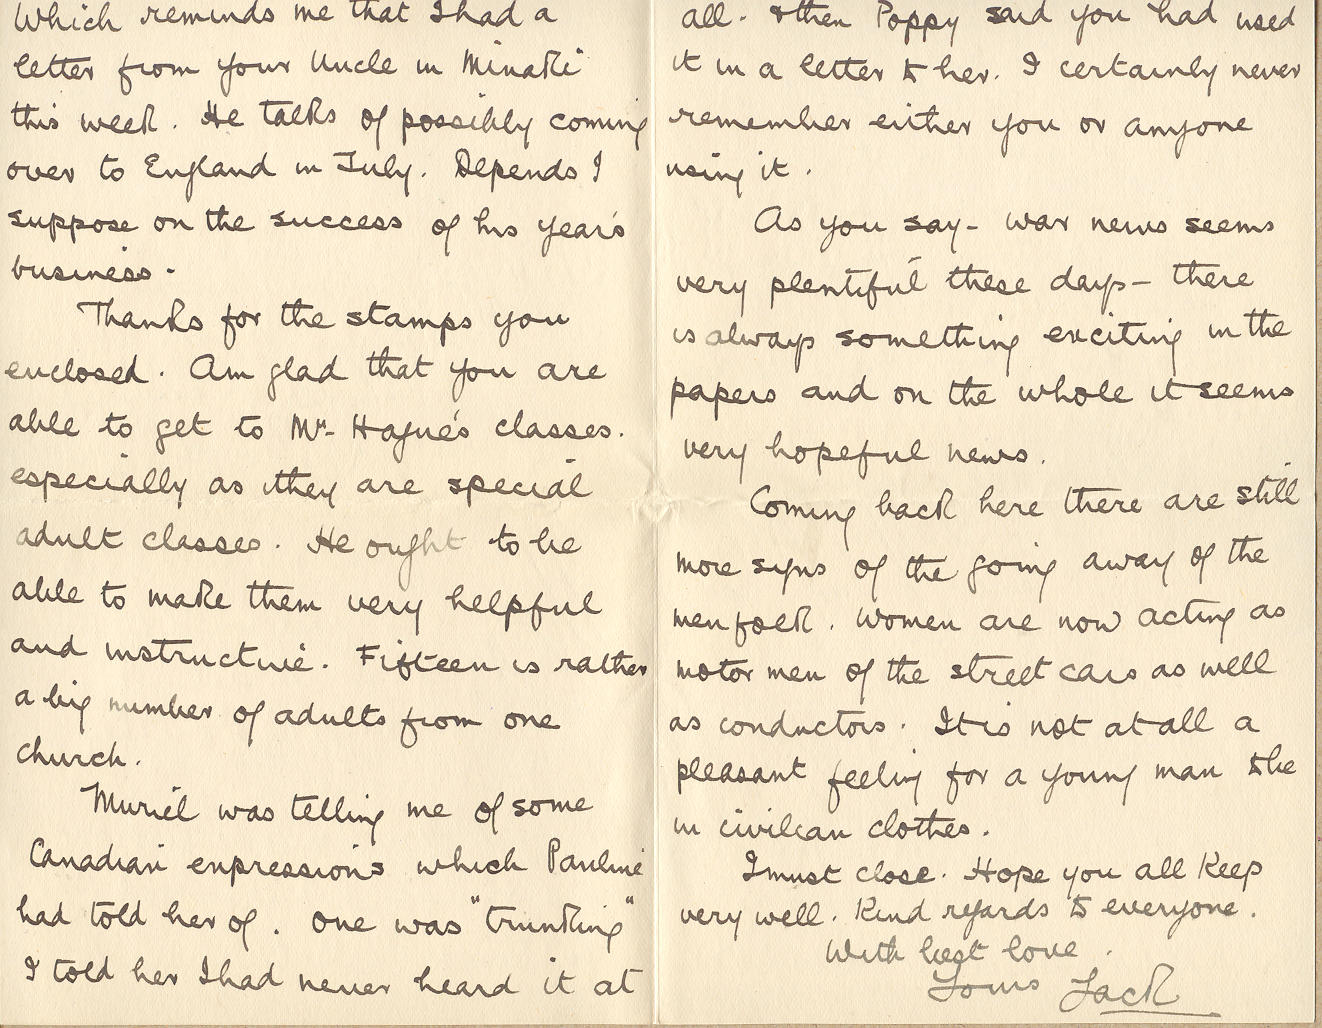 Which reminds me that I had a
letter from your Uncle in Minaki
this week. He talks of possibly coming
over to England in July. Depends I
suppose on the success of his year's
business.
Thanks for the stamps you
enclosed. Am glad that you are
able to get to Mr. Hague's classes.
especially as they are special
adult classes. He ought to be
able to make them very helpful
and instructive. Fifteen is rather
a big number of adults from one
church.
Muriel was telling me of some
Canadian expressions which Pauline
had told her of. One was "trunking"
I told her I had never heard it at
all. & then Poppy said you had used
it in a letter to her. I certainly never
remember either you or anyone
using it.
As you say - war news seems
very plentiful these days - there
is always something exciting in the
papers and on the whole it seems
very hopeful news.
Coming back here there are still
more signs of the going away of the
menfolk. Women are now acting as
motor men of the street cars as well
as conductors. It is not at all a
pleasant feeling for a young man to be
in civilian clothes.
I must close. Hope you all keep
very well. Kind regards to everyone.
With best love.
Yours Jack